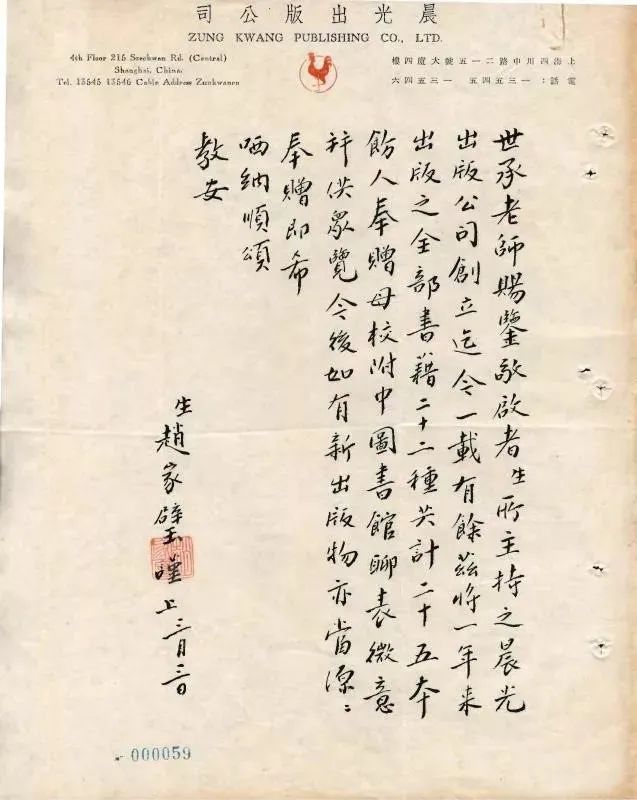 晨光出版公司
ZUNG KWANG PUBLISHING CO., LTD.
4th Floor 215 Szechwan Rd. (Central)
Shanghai, China.
Tel. 13545 13546 Cable Address Zunkwanco
上海四川中路二一五號大廈四樓
電話：一三五四五 一三五四六
世承老師賜鑒敬啟者生所主持之晨光
出版公司創立迄今一載有餘茲將一年來
出版之全部書籍二十二種共計二十五本
飭人奉贈母校附中圖書館聊表微意
并供衆覽今後如有新出版物亦當源〻
奉贈即希
哂納順頌
教安
生趙家璧謹上三月三日
000059